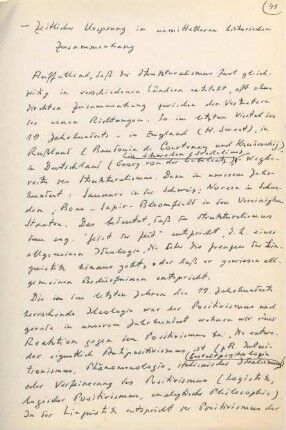 41
– Zeitlicher Ursprung im unmittelbaren historischen
Zusammenhang
Auffallend, daß der Strukturalismus fast gleich-
zeitig in verschiedenen Ländern entsteht, oft ohne
direkten Zusammenhang zwischen den Vertretern
der neuen Richtungen. So im letzten Viertel des
19 Jahrhunderts – in England (H. Sweet), in
Rußland (Baudouin de Courtenay und Kruszewski),
in Deutschland (Georg von der Gabelentz) Wegbe-
reiter des Strukturalismus. Dann in unserem Jahr-
hundert: Saussure in der Schweiz; Noreen in Schwe-
den, Boas – Sapir – Bloomfield in den Vereinigten
Staaten. Das bedeutet, daß der Strukturalismus
einer allgemeinen Ideologie, die über die Grenzen der Lin-
guistik hinaus geht, oder daß er gewissen all-
gemeinen Bedürfnissen entspricht.
Die in den letzten Jahren des 19 Jahrhunderts
herrschende Ideologie war der Positivismus und
gerade in unserem Jahrhundert nehmen wir eine
Reaktion gegen den Positivismus
der eigentlich Antipositivismus ist (z.B. Intui-
tionismus, Phänomenologie, Gestaltpsychologie, italienischer Idealismus)
oder Verfeinerung des Positivismus (Logistik,
logischer Positivismus, analytische Philosophie).
In der Linguistik entspricht der Positivismus der